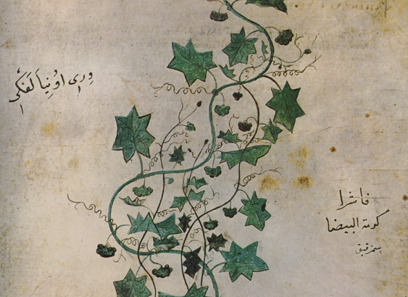 ورى اونيا لفكى
فاشرا
كرمة البيضا